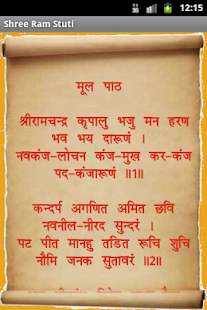 12:15
Shree Ram Stuti
मूल पाठ
श्रीरामचन्द्र कृपालु भजु मन हरण
भव भय दारूणं ।
नवकंज-लोचन कंज-मुख कर-कंज
पद-कंजारूणं ॥1॥
कन्दर्प अगणित अमित छवि
नवनील-नीरद सुन्दरं ।
पट पीत मानहु तडित रूचि शुचि
नौमि जनक सुतावरं ॥2॥